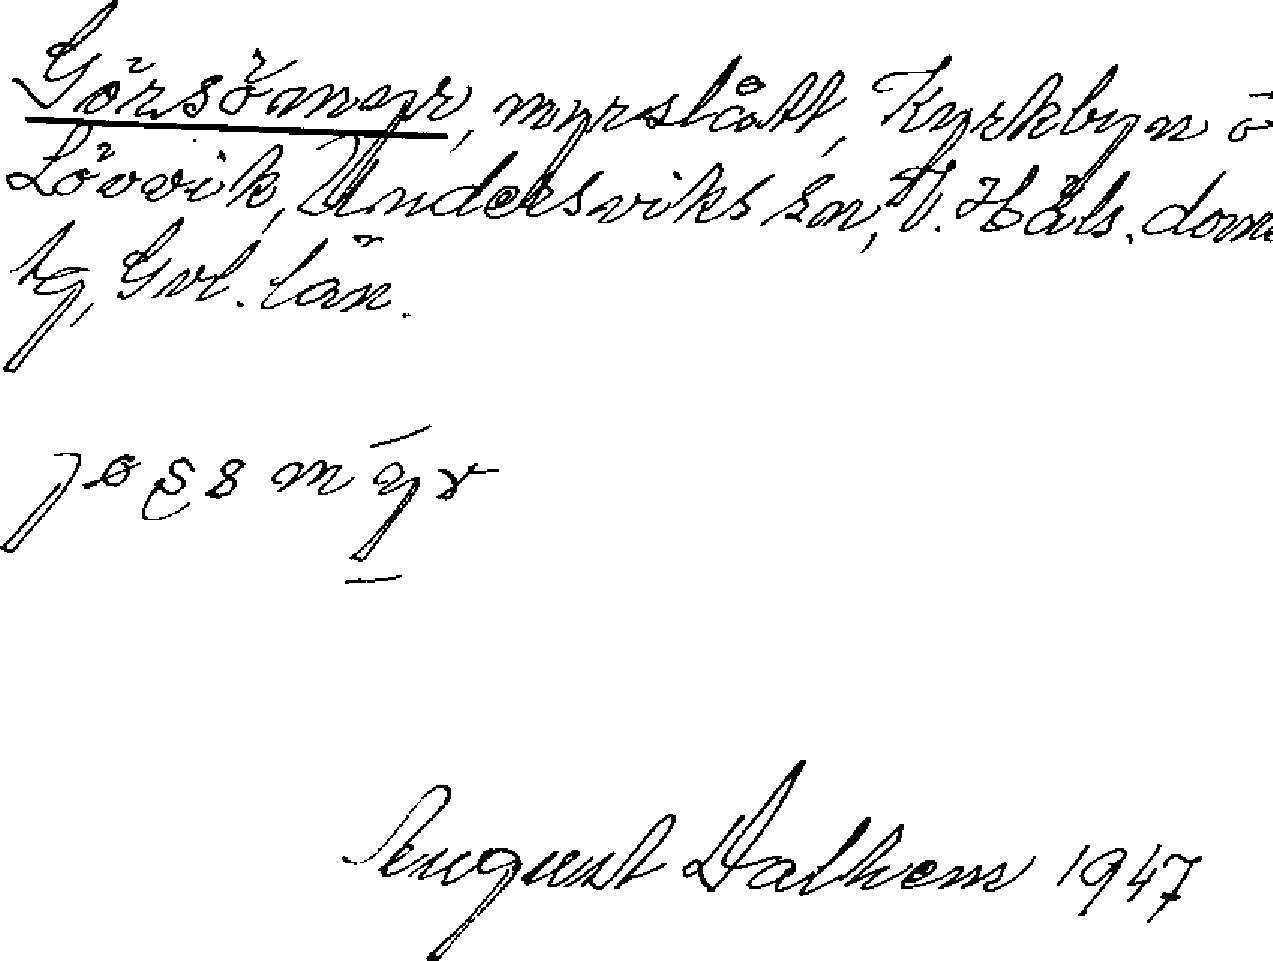 Görsömyr, myrslått, Kyrkbyn o
Lövvik, Undersviks sn, V. Häls. doms
tg, Gvl. län.
August Dalhem 1947